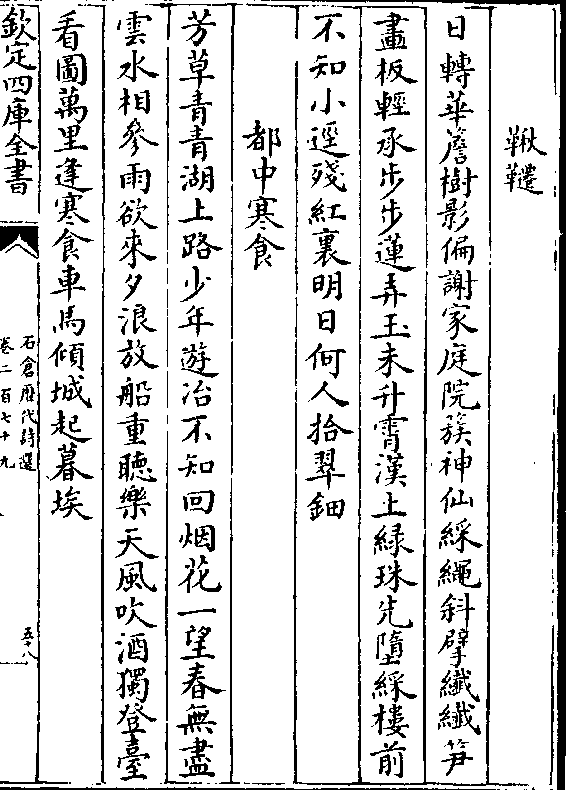 鞦韆
日轉華簷樹影偏謝家庭院簇神仙綵繩斜擘纖纖笋
畫板輕承步步蓮弄玉未升霄漢上緑珠先墮綵樓前
不知小逕殘紅裏明日何人拾翠鈿
都中寒食
芳草青青湖上路少年遊冶不知回烟花一望春無盡
雲水相參雨欲來夕浪放船重聽樂天風吹酒獨登臺
看圖萬里逢寒食車馬傾城起暮埃
欽定四庫全書
石倉歷代詩選
卷二百七十九
五十八